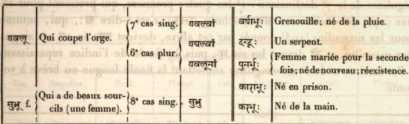 यवलू Qui coupe l'orge. 7e cas sing. यवल्वां
6e cas plur. यवल्वां
यवलूनां
सुभ्रु f. Qui a de beaux sour-
cils (une femme). 8e cas sing. सुभ्रु
वर्षाभूः Grenouille; né de la pluie.
Un serpent.
पुनर्भूः Femme mariée pour la seconde
fois; né de nouveau; réexistence.
काराभूः Né en prison.
Né de la main.